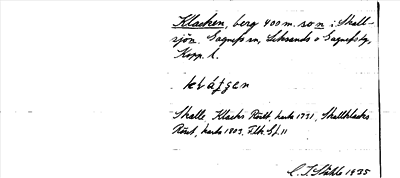 Klacken, berg 400 m. so n i Skall-
sjön. Gagnefs sn, Leksands o Gagnefs tg,
Kopp. l.
Skalle, Klacks Röset, karta 1771, Skallklacks
Röset, karta 1803,
C. I. Ståhle 1935